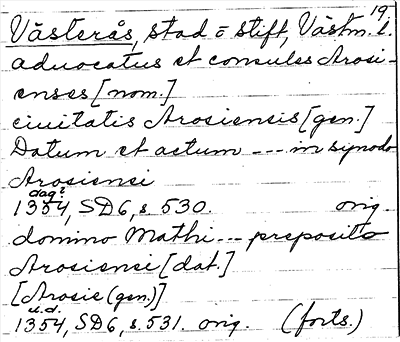 19.
Västerås, stad o stift, Västm. l.
aduocatus et consules Arosi-
enses [nom.]
ciuitatis Arosiensis [gen.]
Datum et actum --- in synodo
Arosiensi
dag?
1354, SD6, s. 530. orig.
domino Mathi --- preposito
Arosiensi [dat.]
[Arosie (gen.)]
u.d.
1354, SD6, s. 531. orig. (forts.)